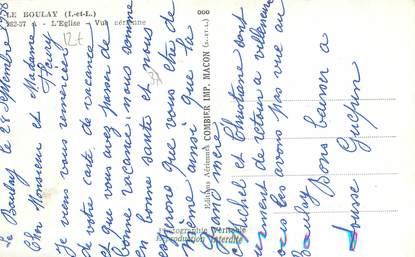 LE BOULAY (I.-et-L.)
282-37 A - L'Eglise - Vue aérienne
12 f
Le Boulay le 28 septembre
Cher Monsieur et Madame
Fleury
Je viens vous remercier
de votre carte de vacance
et que vous avez passer de
bonne vacance, nous somme
en bonne santé et nous
esperons que vous être de
même ainsi que la
grand mère
Michel et Christiane sont
de retour a villeneuve
nous les avons pas vue au
Boulay
Bons baiser a
tousse
Editions Aériennes COMBIER IMP. MACON (S.-ET-L.)
Photographie Véritable
Reproduction Interdite